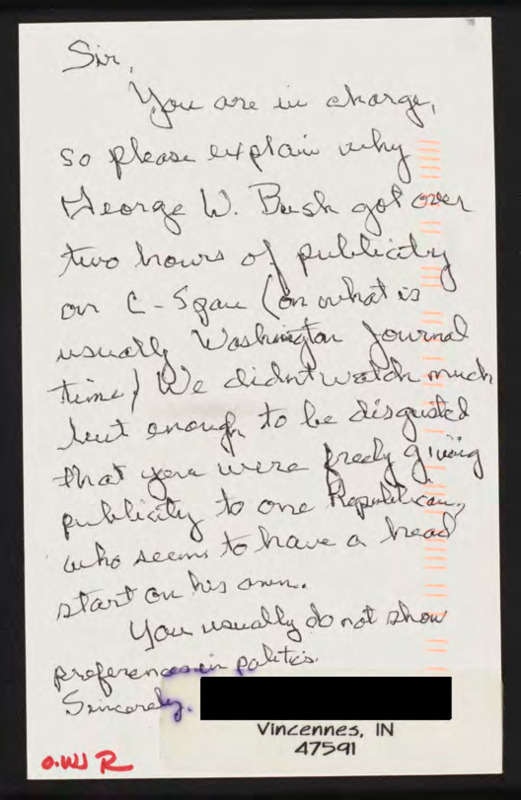 Sir,
You are in charge,
so please explain why
George W. Bush got over
two hours of publicity
on C-Span (on what is
usually Washington Journal
time) We didnt watch much
but enough to be disgusted
that you were freely giving
publicity to one Republican,
who seems to have a head
start on his own.
You usually do not show
preferences in politics.
Sincerely,
Vincennes, IN
47591